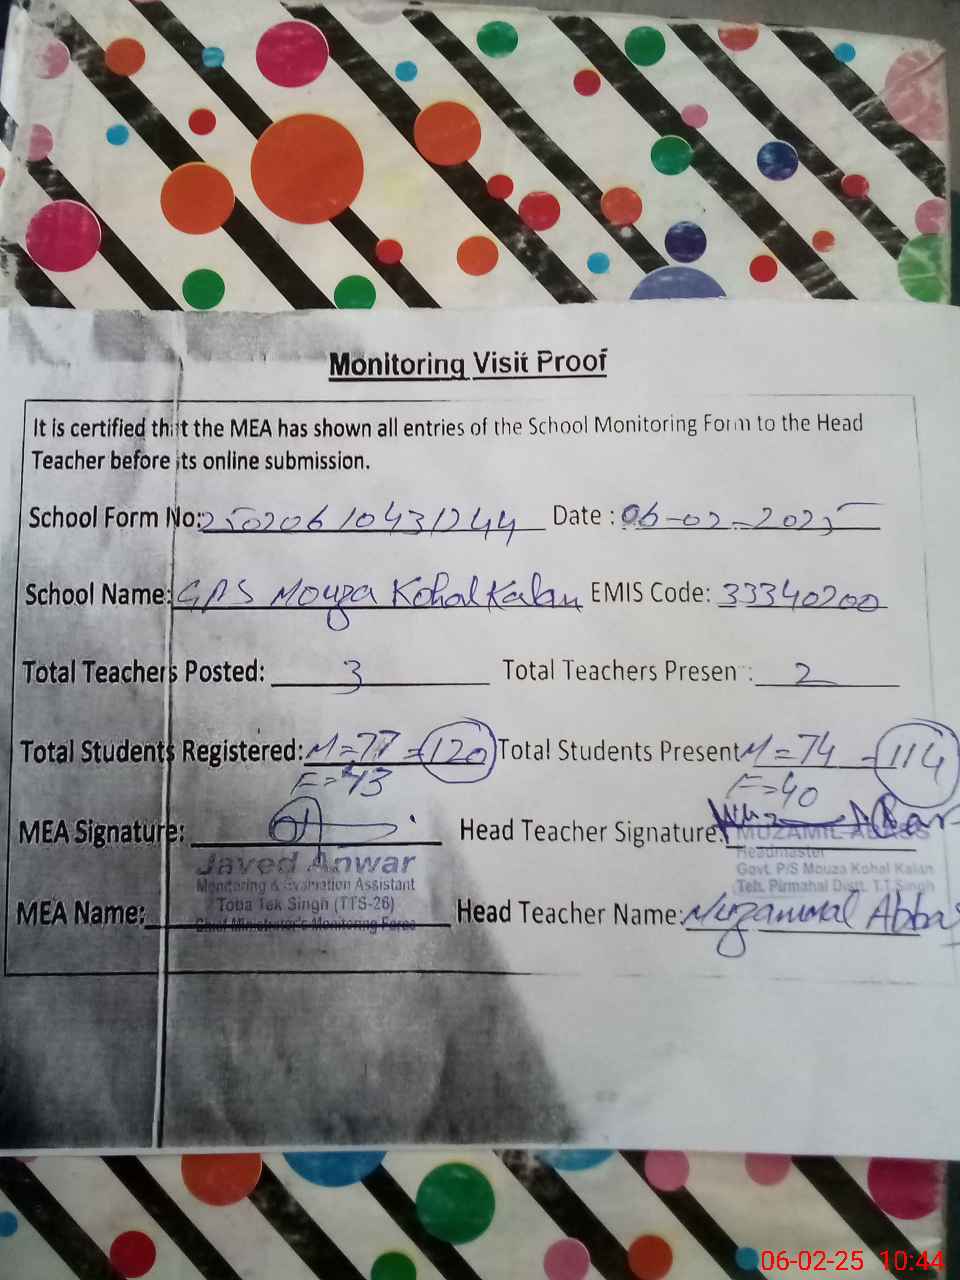 Monitoring Visit Proof
It is certified that the MEA has shown all entries of the School Monitoring Form to the Head
Teacher before its online submission.
School Form No: 25020610431244 Date : 06-02-2025
School Name: GPS Mouza Kohal Kalan EMIS Code: 33340200
Total Teachers Posted: 3 Total Teachers Present: 2
Total Students Registered: M=77 = 120 Total Students Present M=74 = 114
F=43 F=40
MEA Signature: Head Teacher Signature:
Javed Anwar
Monitoring & Evaluation Assistant
Toba Tek Singh (TTS-26)
Chief Minister's Monitoring Force
MUZAMIL ABBAS
Headmaster
Govt. P/S Mouza Kohal Kalan
Teh. Pirmahal Distt. T.T.Singh
MEA Name: Head Teacher Name: Muzammal Abbas
06-02-25 10:44